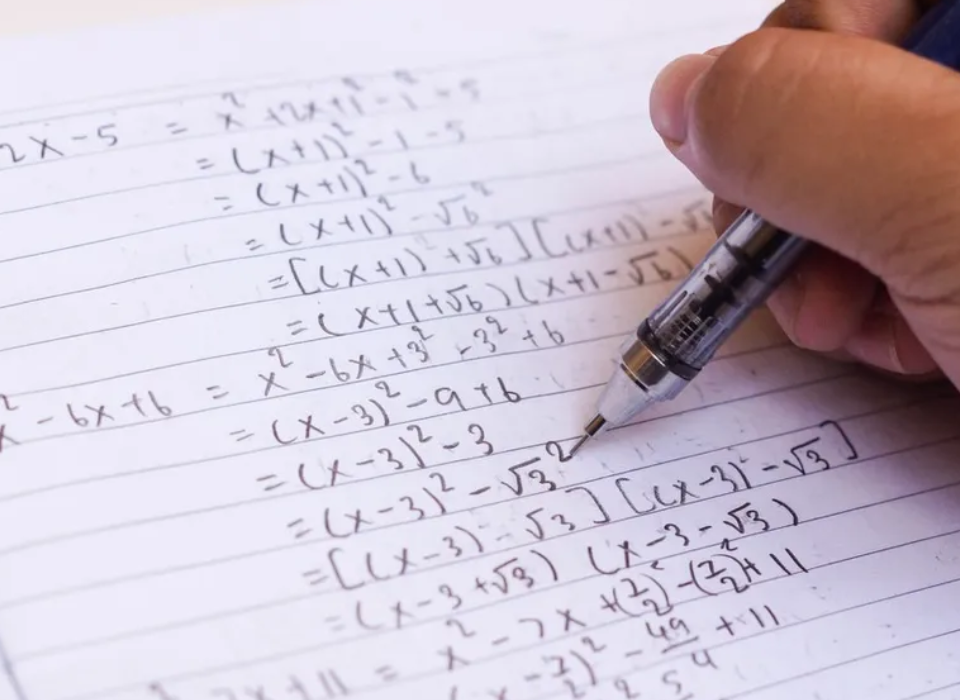 2x - 5 = x² + 2x + 1² - 1² - 5
= (x+1)² - 1 - 5
= (x+1)² - 6
= (x+1)² - √6²
= [(x+1) + √6] [(x+1) - √6
= (x+1+√6) (x+1-√6)
x² - 6x + 6 = x² - 6x + 3² - 3² + 6
= (x-3)² - 9 + 6
= (x-3)² - 3
= (x-3)² - √3²
= [(x-3) - √3] [(x-3) - √3]
= (x-3+√3) (x-3-√3)
7x + 11 = x² - 7x + (7/2)² - (7/2)² + 11
(x - 7/2)² - 49/4 + 11